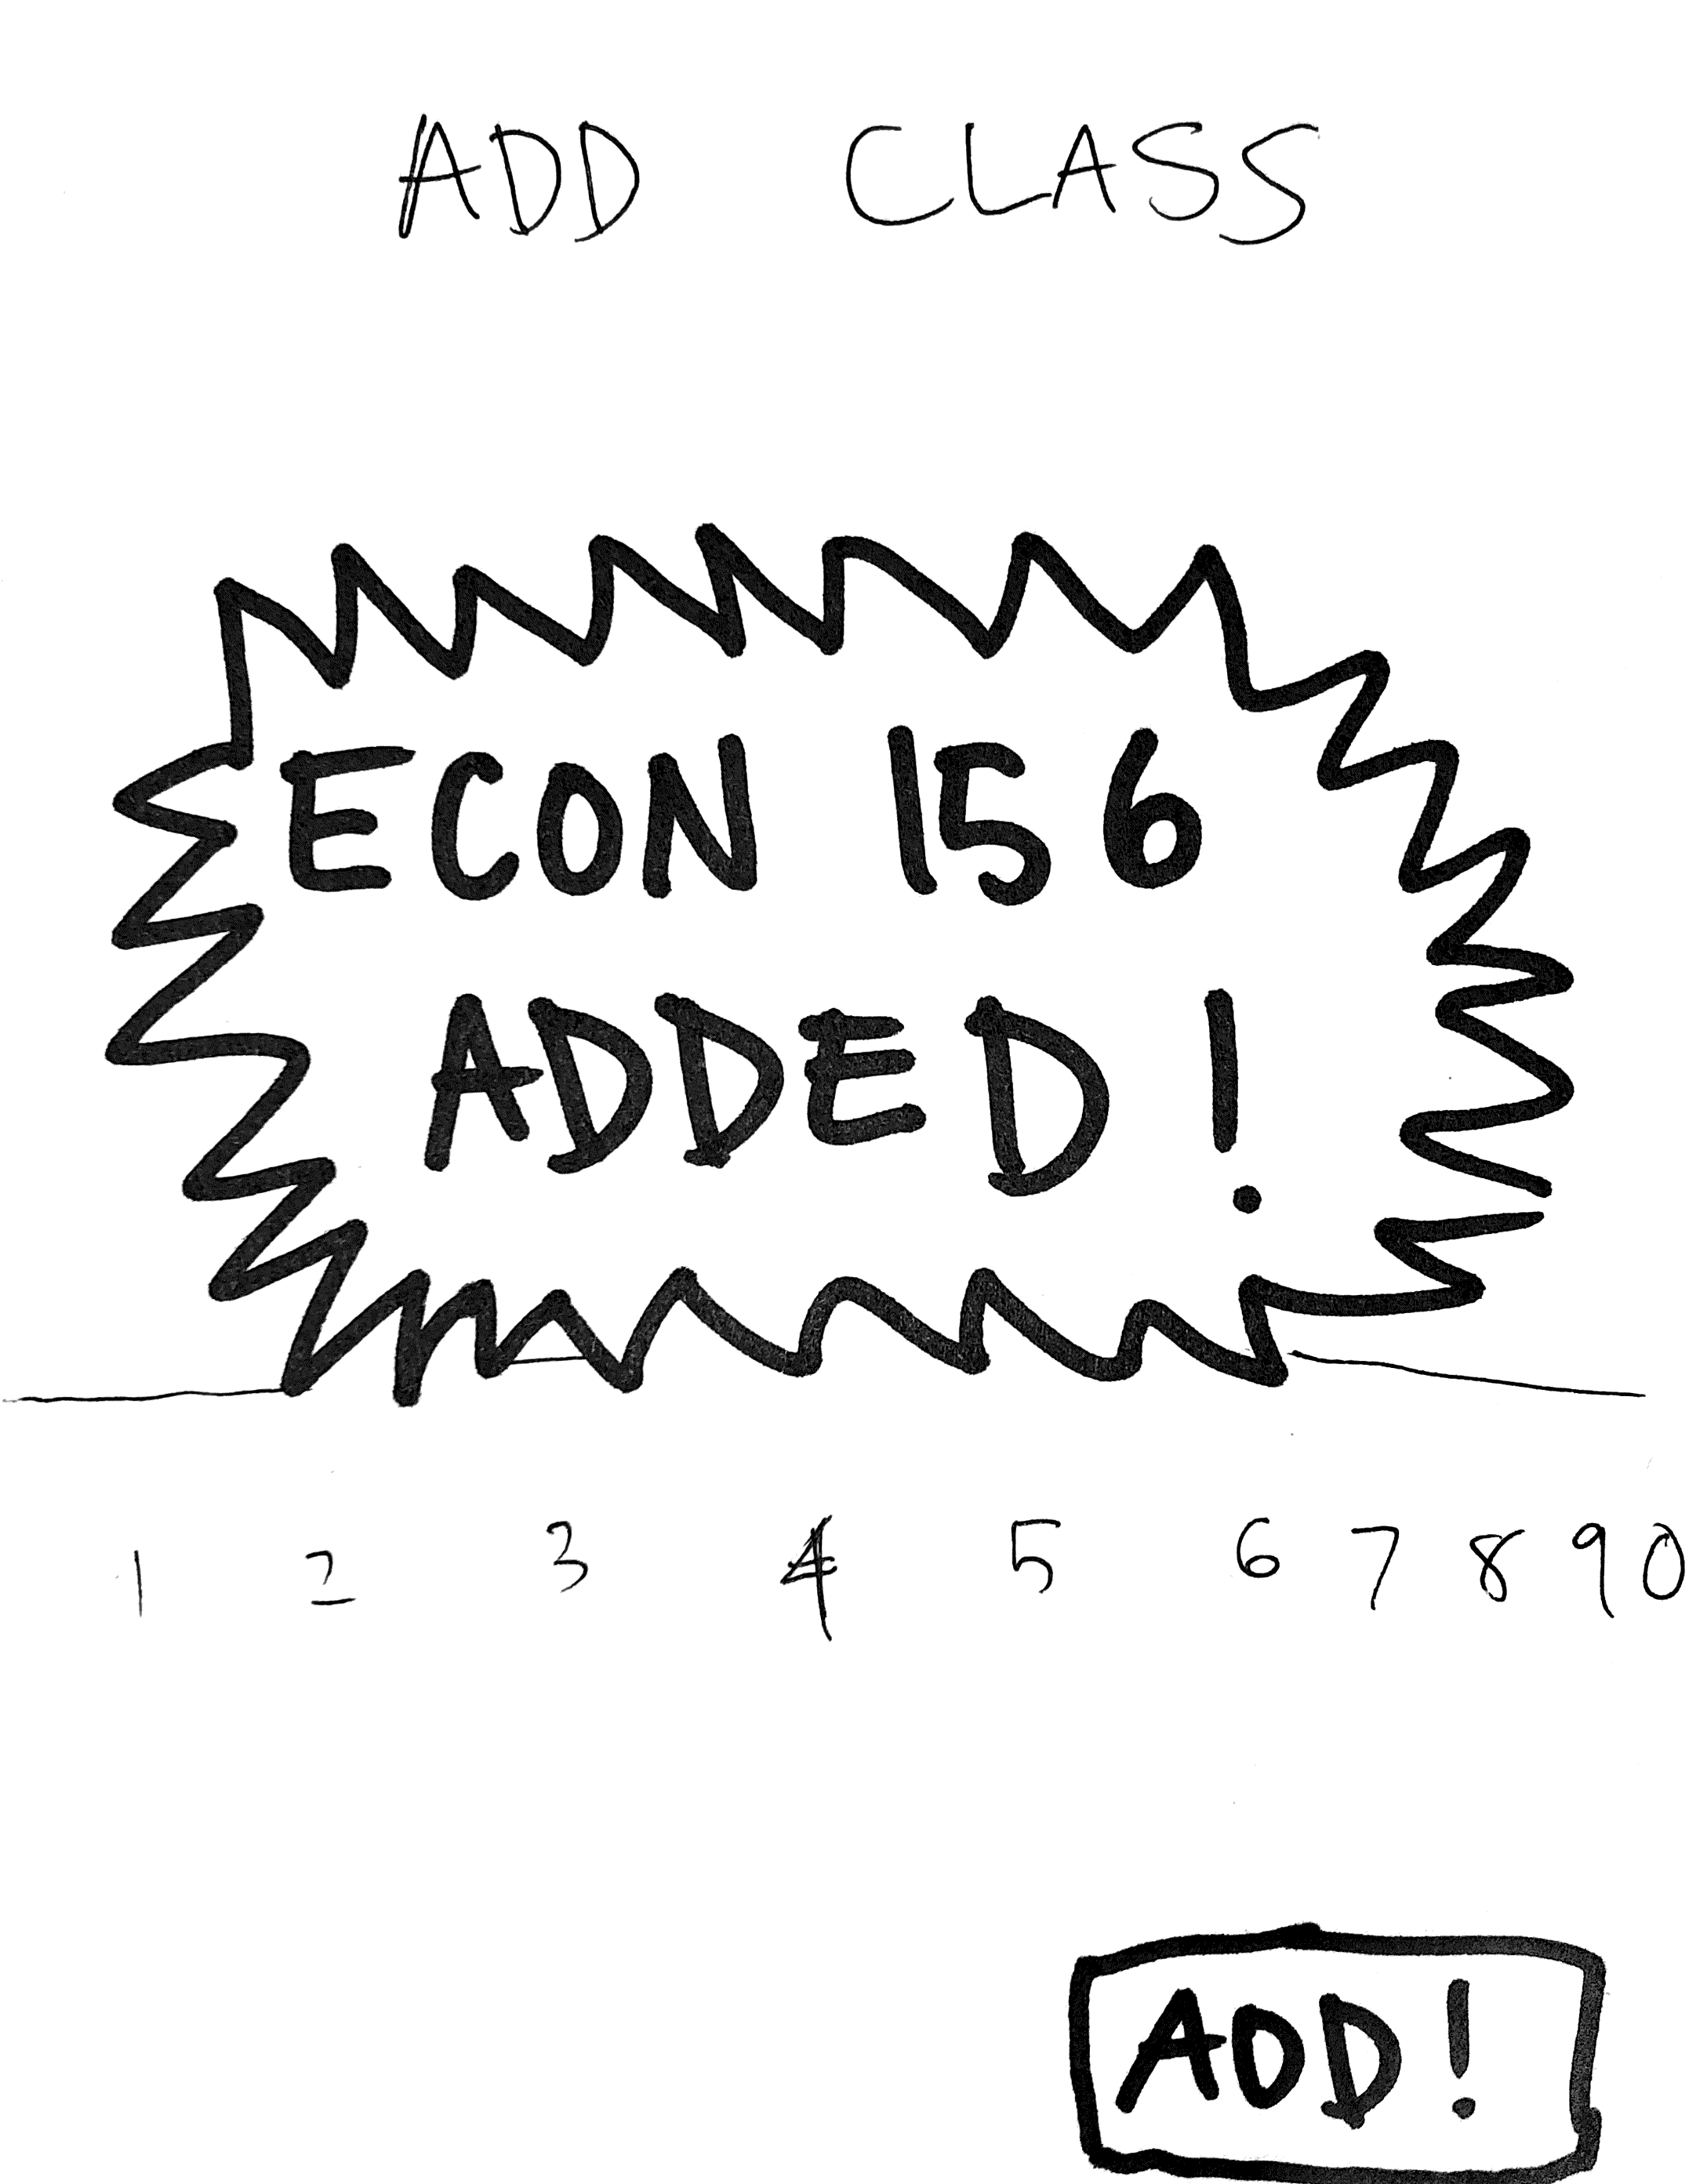 ADD CLASS
ECON 156
ADDED!
1 2 3 4 5 6 7 8 9 0
ADD!